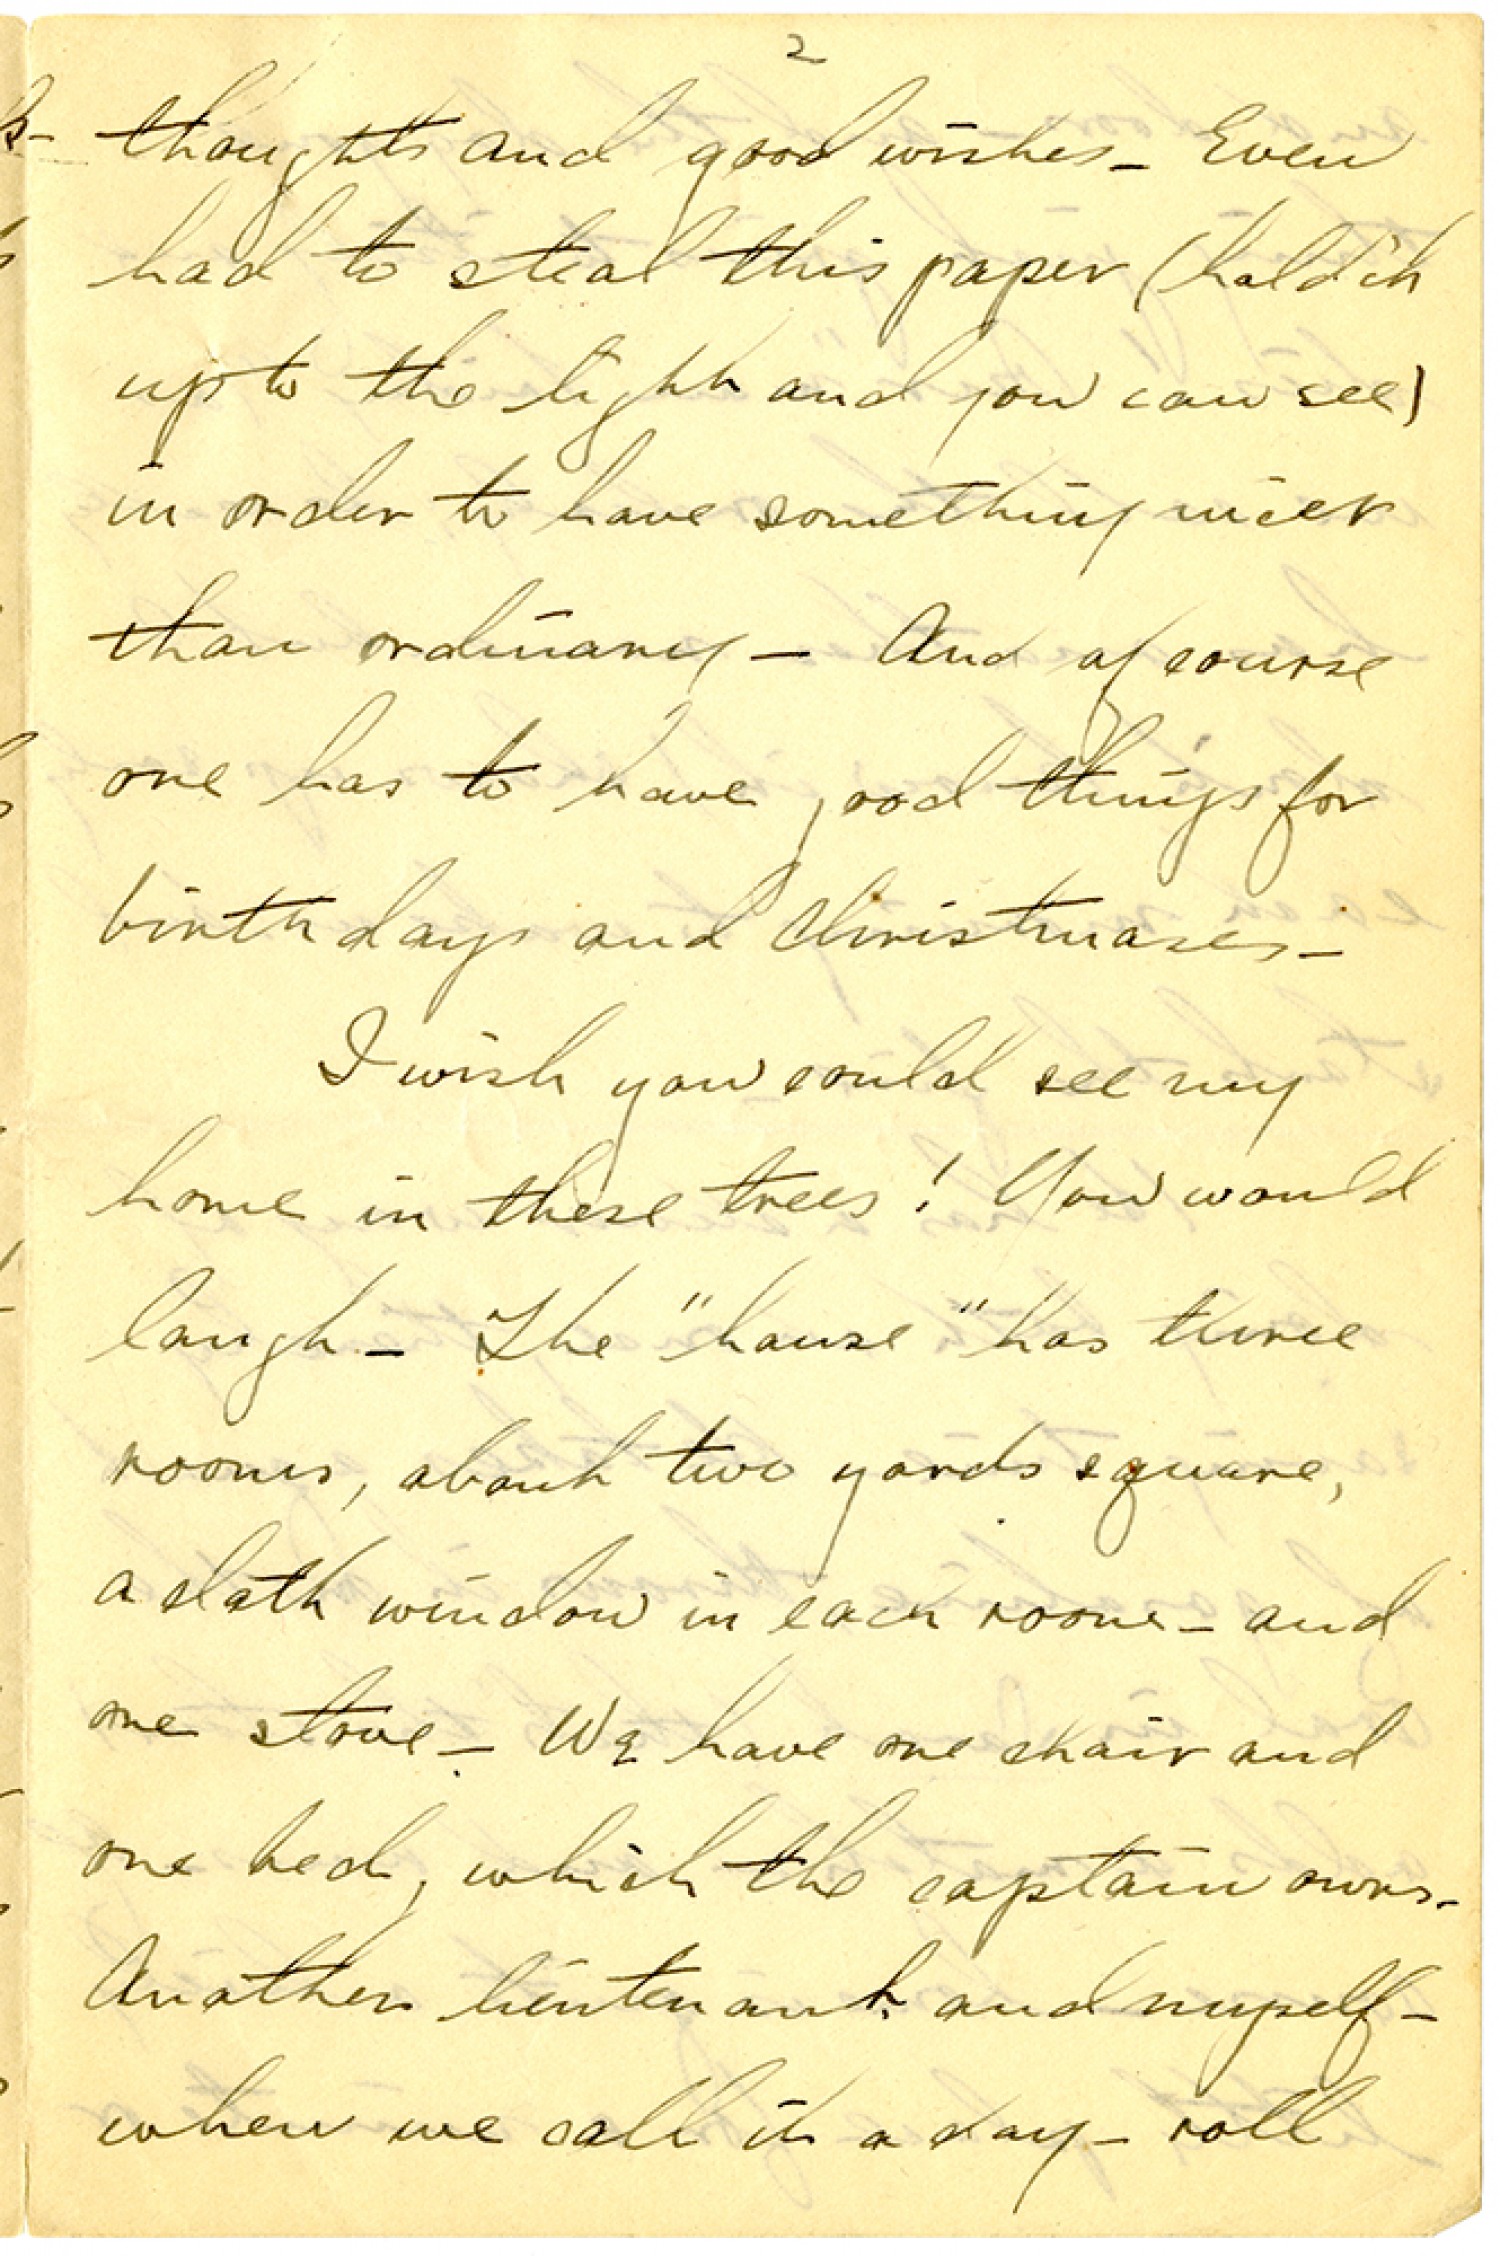 2
thoughts and good wishes – Even
had to steal this paper (hold it
up to the light and you can see)
in order to have something nicer
than ordinary – And of course
one has to have good things for
birthdays and Christmases –
I wish you could see my
home in these trees! You would
laugh – The "house" has three
rooms, about two yards square,
a cloth window in each room – and
one stove – We have one chair and
one bed, which the captain owns –
Another lieutenant and myself –
when we call it a day – roll